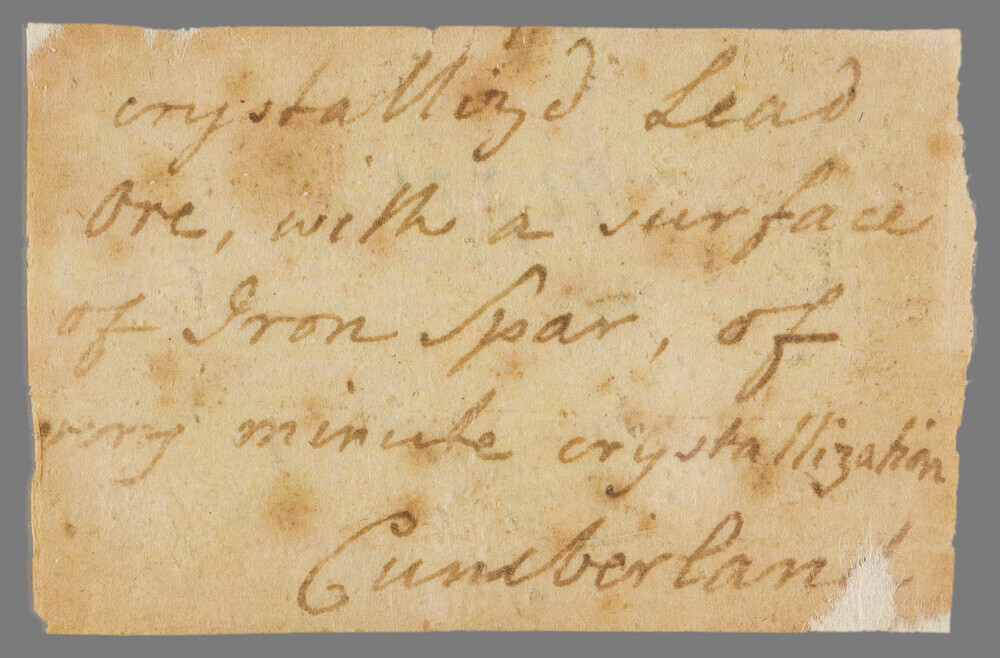 crystallizd Lead
Ore, with a surface
of Iron Spar, of
very minute crystallization
Cumberland